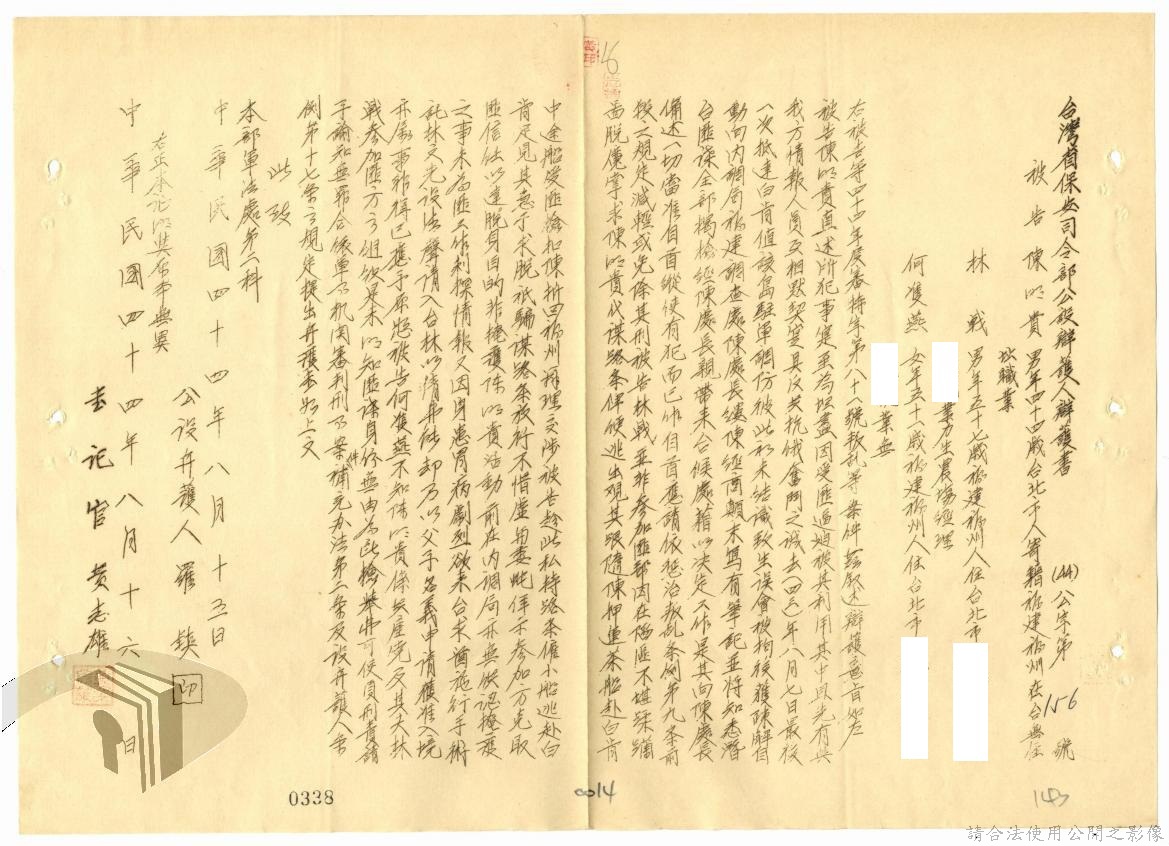 台灣省保安司令部公設辯護人辯護書
(44)公字第156號
被告陳明貴男年四十四歲台北市人寄籍福建福州在台無住
址職業
林戰男年五十七歲福建福州人住台北市
業力生農場經理
何獲燕女年五十一歲福建福州人住台北市
業無
右被告等四十四年度審特字第八十八號叛亂等案件茲叙述辯護意旨如左
被告陳明貴直述所犯事實至為坦盡因受匪逼迫被其利用其中因先有與
我方情報人員互相默契實具反共抗俄奮鬥之誠去(四三)年八月七日最後
一次抵達白肯值該島駐軍調防彼此初未結識致生誤會被拘後獲陳解自
動向內調局福建調查處陳處長縷陳經商顛末寫有筆記並將知悉潛
台匪諜全部揭檢經陳處長親帶來台候處藉以決定工作是其向陳處長
備述一切當准自首縱使有犯而已作自首應請依懲治叛亂條例第九條前
段之規定減輕或免除其刑被告林戰並非參加匪幫因在福匪不堪蹂躪
函脫魔掌求陳明貴代謀路條俾便逃出觀其跟隨陳押運茶船赴白肯
中途船受匪檢扣陳折回福州辦理交涉被告趁此私持路條僱小船逃赴白
肯足見其意于求脫祇騙謀路條放行不惜虛與委蛇佯示參加方克取
匪信任以達脫身目的非掩護陳明貴活動前在內調局亦無供認掩護
之事未為匪工作刺探情報又因身患胃病劇烈欲來台求酒施行手術
託林文光設法聲請入台林以清弗能卻乃以父子名義申請獲准入境
亦屬事非得已應予原恕被告何獲燕不知陳明貴係共產党及其夫林
戰參加匪方之組織是未明知匪諜身份無由為匪檢舉弗可使負刑責請
予諭知無罪合依軍事机関審判刑事案件補充办法第二条及設弁護人条
例第十七条之規定提出弁護書如上文
此致
本部軍法處第二科
中華民國四十四年八月十五日
公設弁護人羅鎮
印
右正本証明與原本無異
中華民國四十四年八月十六日
書記官黃志雄
0338
0014
143
16
請合法使用公開之影像